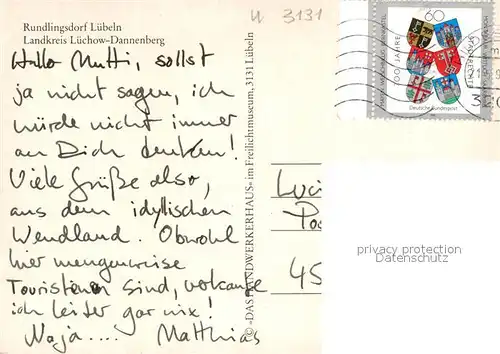 Rundlingsdorf Lübeln
Landkreis Lüchow-Dannenberg
Hallo Mutti, sollst
ja nicht sagen, ich
würde nicht immer
an Dich denken!
Viele Grüße also,
aus dem idyllischen
Wendland. Obwohl
hier mengenweise
Touristen sind, verkaufe
ich leider gar nix!
Naja.... Matthias
© «DAS HANDWERKERHAUS» im Freilichtmuseum, 3131 Lübeln
3131
60
JAHRE
STADTRECHTE
Deutsche Bundespost
Luci
Pos
45
privacy protection
Datenschutz